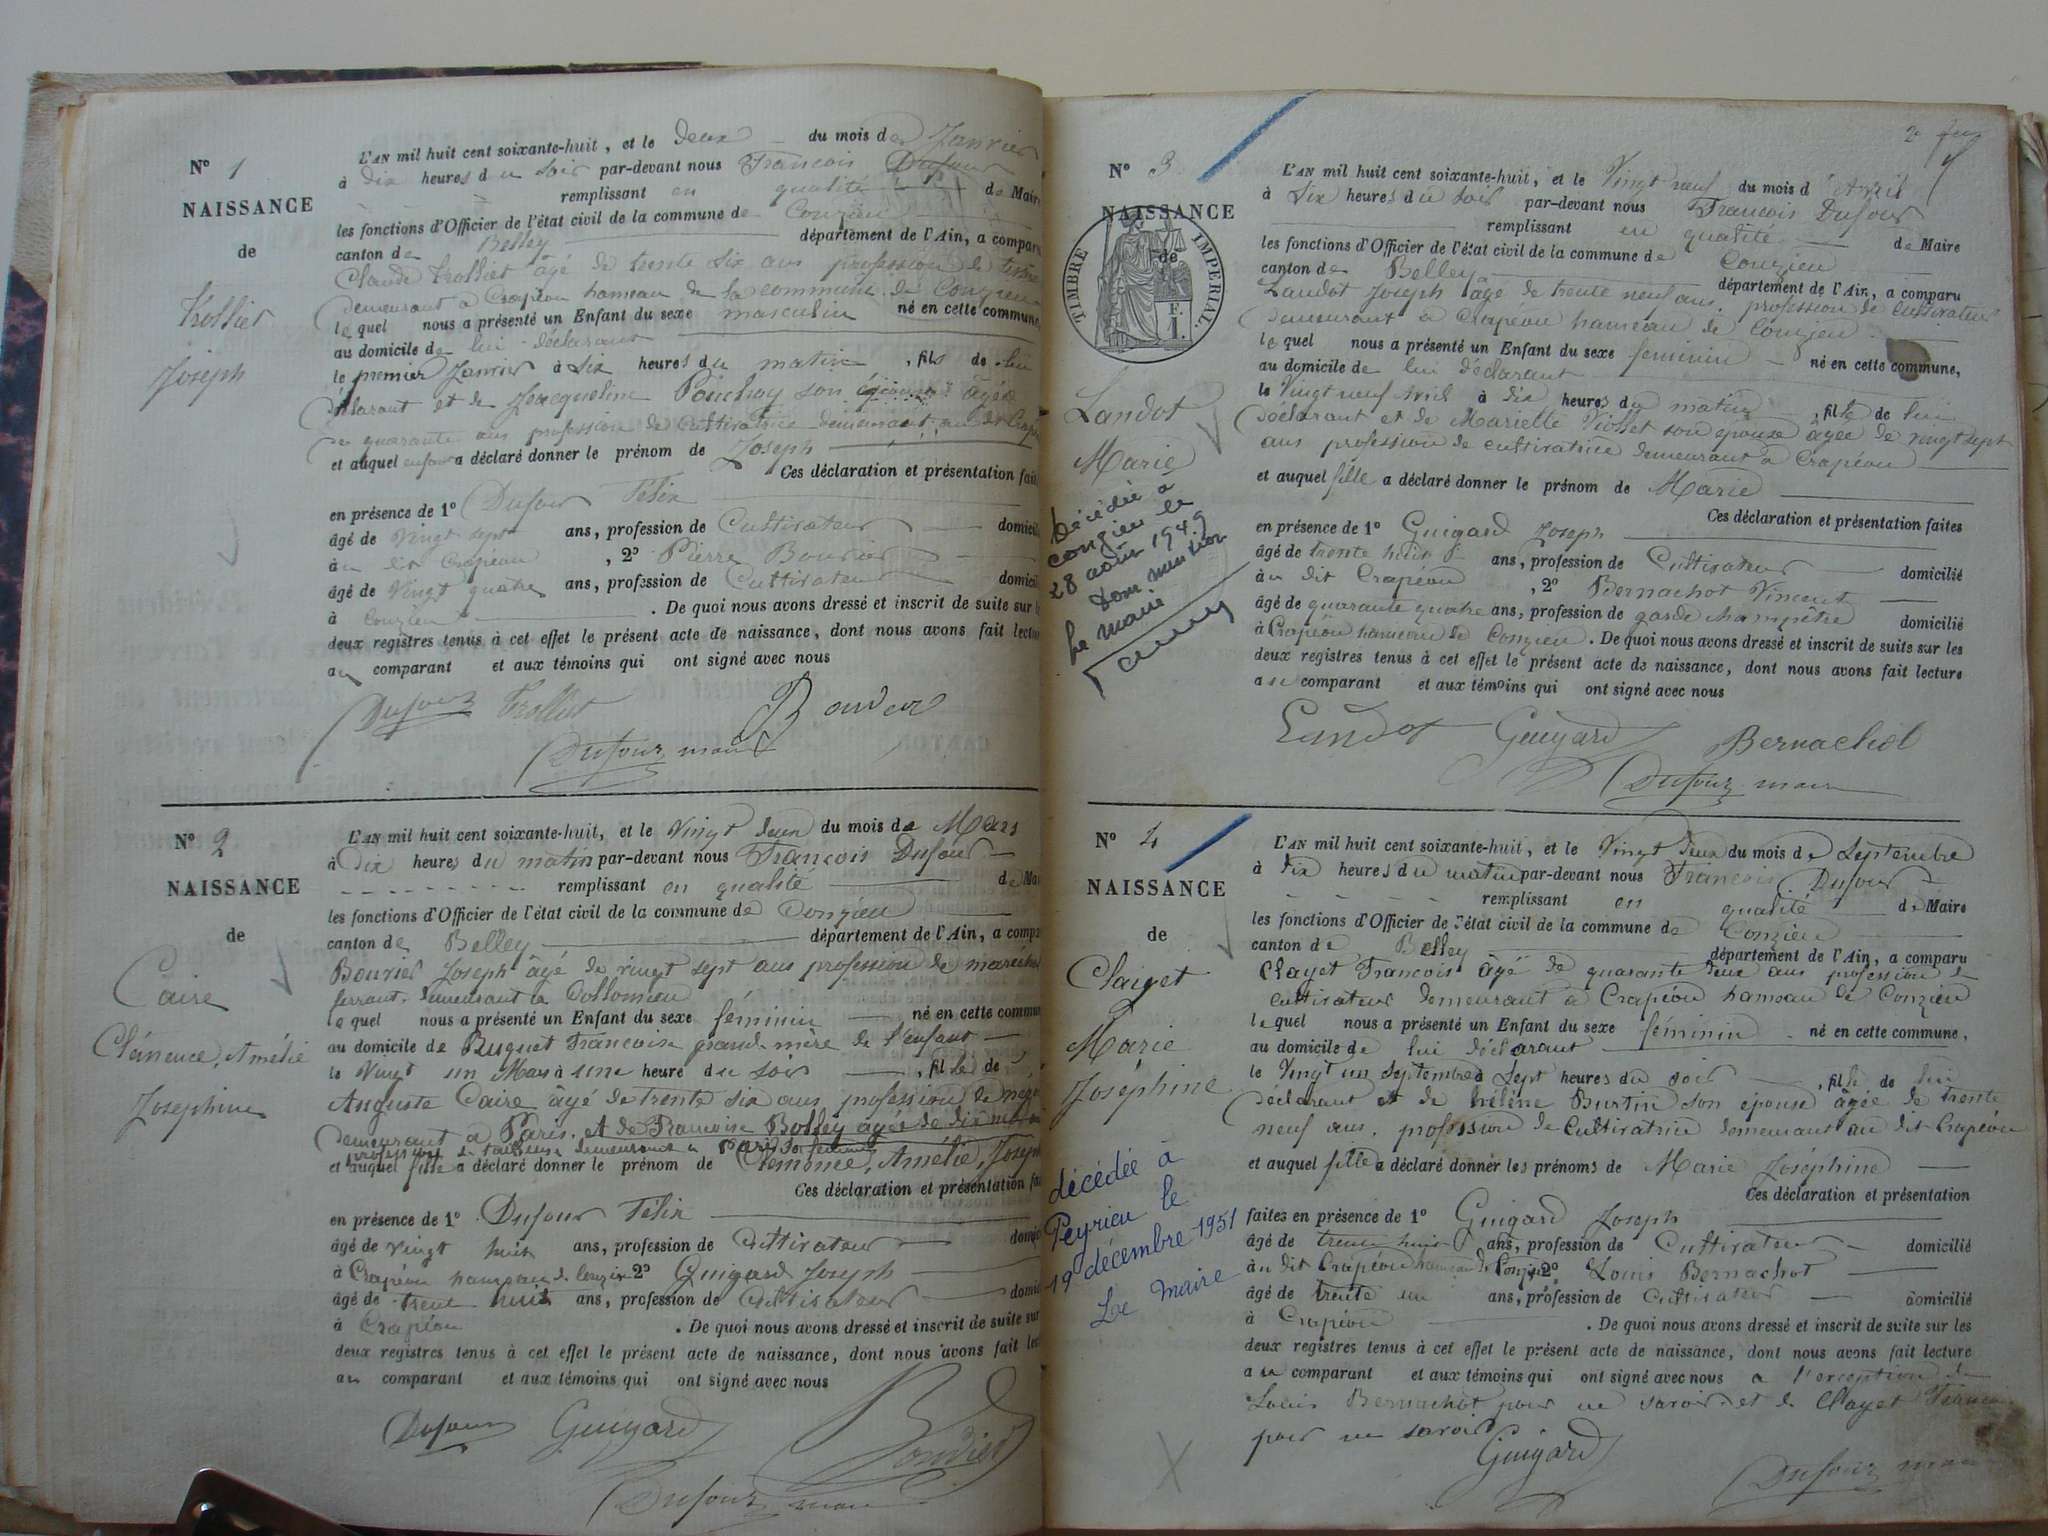 N° 1
NAISSANCE
de
Trolliet
Joseph
L'AN mil huit cent soixante-huit, et le deux du mois de Janvier
à dix heures du soir par-devant nous Francois Dufour
remplissant en qualité de Maire
les fonctions d'Officier de l'état civil de la commune de Conzieu
canton de Belley département de l'Ain, a comparu
Claude Trolliet âgé de trente six ans profession de
demeurant à Crapéou hameau de la commune de Conzieu
lequel nous a présenté un Enfant du sexe masculin né en cette commune,
au domicile de lui déclarant
le premier Janvier à six heures du matin, fils de lui
déclarant et de Jacqueline Ponchoy son épouse âgée
de quarante ans profession de cultivatrice demeurant au dit Crapéou
et auquel enfant a déclaré donner le prénom de Joseph
Ces déclaration et présentation faites
en présence de 1° Dufour Félix
âgé de vingt sept ans, profession de Cultivateur domicilié
à u dit Crapéou, 2° Pierre Bouvier
âgé de vingt quatre ans, profession de Cultivateur domicilié
à Conzieu. De quoi nous avons dressé et inscrit de suite sur les
deux registres tenus à cet effet le présent acte de naissance, dont nous avons fait lecture
au comparant et aux témoins qui ont signé avec nous
Dufour Trolliet Bouvier
Dufour maire
N° 2
NAISSANCE
de
Caire
Clémence, Amélie
Joséphine
L'AN mil huit cent soixante-huit, et le vingt deux du mois de Mars
à dix heures du matin par-devant nous Francois Dufour
remplissant en qualité de Maire
les fonctions d'Officier de l'état civil de la commune de Conzieu
canton de Belley département de l'Ain, a comparu
Bouvier Joseph âgé de vingt sept ans profession de maréchal
ferrant, demeurant à Dollomieu
lequel nous a présenté un Enfant du sexe féminin né en cette commune
au domicile de Buguet Francoise grand-mère de l'enfant
le vingt un Mars à une heure du soir, fille de
Auguste Caire âgé de trente six ans profession de
demeurant à Paris, et de Francoise Bolley âgée de dix
profession de demeurant à Paris sa femme
et auquel fille a déclaré donner le prénom de Clémence, Amélie, Joséph
Ces déclaration et présentation fai
en présence de 1° Dufour Félix
âgé de vingt huit ans, profession de Cultivateur domicilié
à Crapéou hameau de Conzieu 2° Guigard Joseph
âgé de trente huit ans, profession de Cultivateur domicilié
à Crapéou. De quoi nous avons dressé et inscrit de suite sur
deux registres tenus à cet effet le présent acte de naissance, dont nous avons fait lec
au comparant et aux témoins qui ont signé avec nous
Dufour Guigard Bouvier
Dufour maire
N° 3
NAISSANCE
de
TIMBRE IMPERIAL.
Landot
Marie
Décédée à
Conzieu le
28 août 1949
Dont mention
Le maire
L'AN mil huit cent soixante-huit, et le vingt neuf du mois d'Avril
à six heures du soir par-devant nous Francois Dufour
remplissant en qualité de Maire
les fonctions d'Officier de l'état civil de la commune de Conzieu
canton de Belley département de l'Ain, a comparu
Landot Joseph âgé de trente neuf ans, profession de cultivateur
demeurant à Crapéou hameau de Conzieu
lequel nous a présenté un Enfant du sexe féminin né en cette commune,
au domicile de lui déclarant
le vingt neuf Avril à dix heures du matin, fille de lui
déclarant et de Mariette Viollet son épouse âgée de vingt sept
ans profession de cultivatrice demeurant à Crapéou
et auquel fille a déclaré donner le prénom de Marie
Ces déclaration et présentation faites
en présence de 1° Guigard Joseph
âgé de trente huit ans, profession de Cultivateur domicilié
à u dit Crapéou, 2° Bernachot Vincent
âgé de quarante quatre ans, profession de garde champêtre domicilié
à Crapéou hameau de Conzieu. De quoi nous avons dressé et inscrit de suite sur les
deux registres tenus à cet effet le présent acte de naissance, dont nous avons fait lecture
au comparant et aux témoins qui ont signé avec nous
Landot Guigard Bernachot
Dufour maire
N° 4
NAISSANCE
de
Clayet
Marie
Joséphine
décédée à
Peyrieu le
19 décembre 1951
Le Maire
L'AN mil huit cent soixante-huit, et le vingt deux du mois de Septembre
à dix heures du matin par-devant nous Francois Dufour
remplissant en qualité de Maire
les fonctions d'Officier de l'état civil de la commune de Conzieu
canton de Belley département de l'Ain, a comparu
Clayet Francois âgé de quarante deux ans profession de
cultivateur demeurant à Crapéou hameau de Conzieu
lequel nous a présenté un Enfant du sexe féminin né en cette commune,
au domicile de lui déclarant
le vingt un Septembre à sept heures du soir, fille de lui
déclarant et de hélène Burtin son épouse âgée de trente
neuf ans, profession de Cultivatrice demeurant au dit Crapéou
et auquel fille a déclaré donner les prénoms de Marie Joséphine
Ces déclaration et présentation
faites en présence de 1° Guigard Joseph
âgé de trente huit ans, profession de Cultivateur domicilié
à u dit Crapéou hameau de Conzieu, 2° Louis Bernachot
âgé de trente un ans, profession de Cultivateur domicilié
à Crapéou. De quoi nous avons dressé et inscrit de suite sur les
deux registres tenus à cet effet le présent acte de naissance, dont nous avons fait lecture
au comparant et aux témoins qui ont signé avec nous à l'exception de
Louis Bernachot pour ne savoir et de Clayet Francois
pour ne savoir
Guigard
Dufour maire